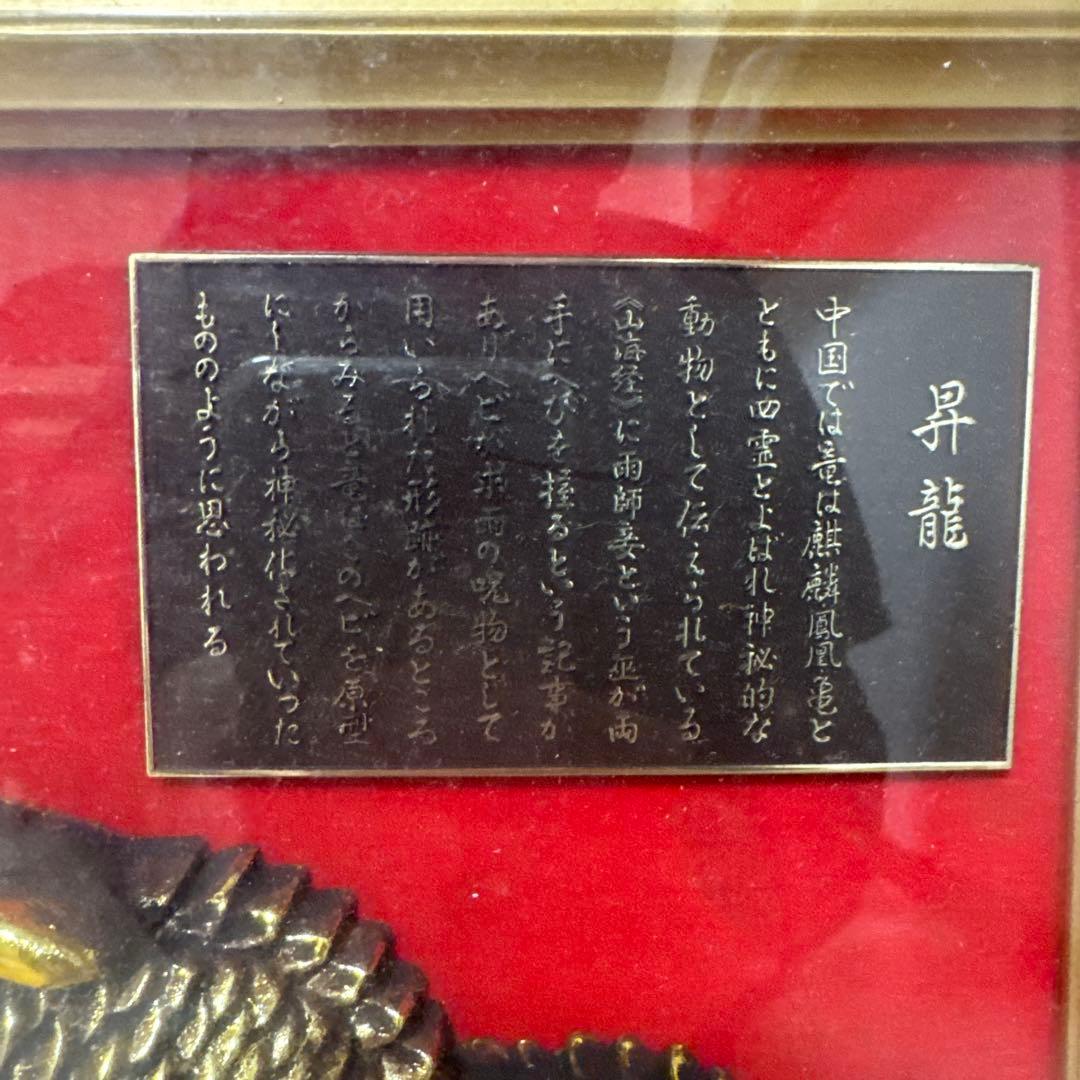 昇龍
中国では竜は麒麟鳳凰亀と
ともに四霊とよばれ神秘的な
動物として伝えられている
《山海経》に雨師妾という巫が両
手にヘびを握るという記事が
ありヘビが求雨の呪物として
用いられた形跡があるところ
からみると竜はこのヘビを原型
にしながら神秘化されていった
もののように思われる